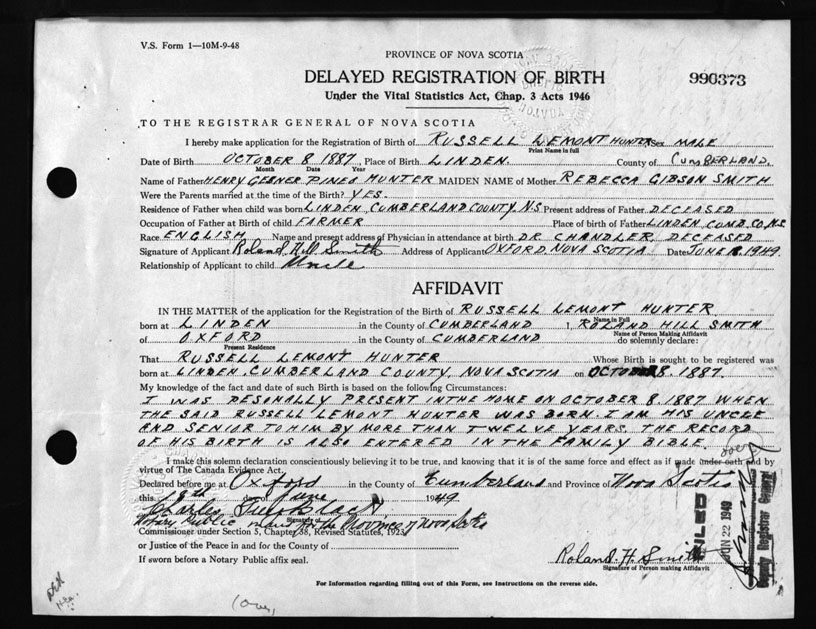 V.S. Form 1—10M-9-48
PROVINCE OF NOVA SCOTIA
DELAYED REGISTRATION OF BIRTH
990373
Under the Vital Statistics Act, Chap. 3 Acts 1946
TO THE REGISTRAR GENERAL OF NOVA SCOTIA
I hereby make application for the Registration of Birth of RUSSELL LEMONT HUNTER Sex MALE
Print Name in full
Date of Birth OCTOBER 8 1887, Place of Birth LINDEN. County of CUMBERLAND.
Month Date Year
Name of Father HENRY GESNER PINEO HUNTER MAIDEN NAME of Mother REBECCA GIBSON SMITH
Were the Parents married at the time of the Birth? YES.
Residence of Father when child was born LINDEN, CUMBERLAND COUNTY, N.S Present address of Father DECEASED
Occupation of Father at Birth of child FARMER Place of birth of Father LINDEN CUMB. CO. N.S.
Race ENGLISH Name and present address of Physician in attendance at birth DR. CHANDLER, DECEASED
Signature of Applicant Roland Hill Smith Address of Applicant OXFORD NOVA SCOTIA Date JUNE 1949
Relationship of Applicant to child Uncle
AFFIDAVIT
IN THE MATTER of the application for the Registration of the Birth of RUSSELL LEMONT HUNTER
Name in Full
born at LINDEN in the County of CUMBERLAND I, ROLAND HILL SMITH
Name of Person Making Affidavit
of OXFORD in the County of CUMBERLAND do solemnly declare:
Present Residence
That RUSSELL LEMONT HUNTER Whose Birth is sought to be registered was
born at LINDEN, CUMBERLAND COUNTY, NOVA SCOTIA on OCTOBER 8. 1887.
My knowledge of the fact and date of such Birth is based on the following Circumstances:
I WAS PESONALLY PRESENT IN THE HOME ON OCTOBER 8. 1887 WHEN
THE SAID RUSSELL LEMONT HUNTER WAS BORN. I AM HIS UNCLE
AND SENIOR TO HIM BY MORE THAN TWELVE YEARS. THE RECORD
OF HIS BIRTH IS ALSO ENTERED IN THE FAMILY BIBLE.
I make this solemn declaration conscientiously believing it to be true, and knowing that it is of the same force and effect as if made under oath and by
virtue of The Canada Evidence Act.
Declared before me at Oxford in the County of Cumberland and Province of Nova Scotia
this 18th day of June 1949
Charles
Notary Public in and for the Province of Nova Scotia
Commissioner under Section 5, Chapter 38, Revised Statutes, 1923
or Justice of the Peace in and for the County of
If sworn before a Notary Public affix seal.
Roland. H. Smith
Signature of Person making Affidavit
FILED
JUN 22 1949
Deputy Registrar General
For Information regarding filling out of this Form, see Instructions on the reverse side.
(Over)